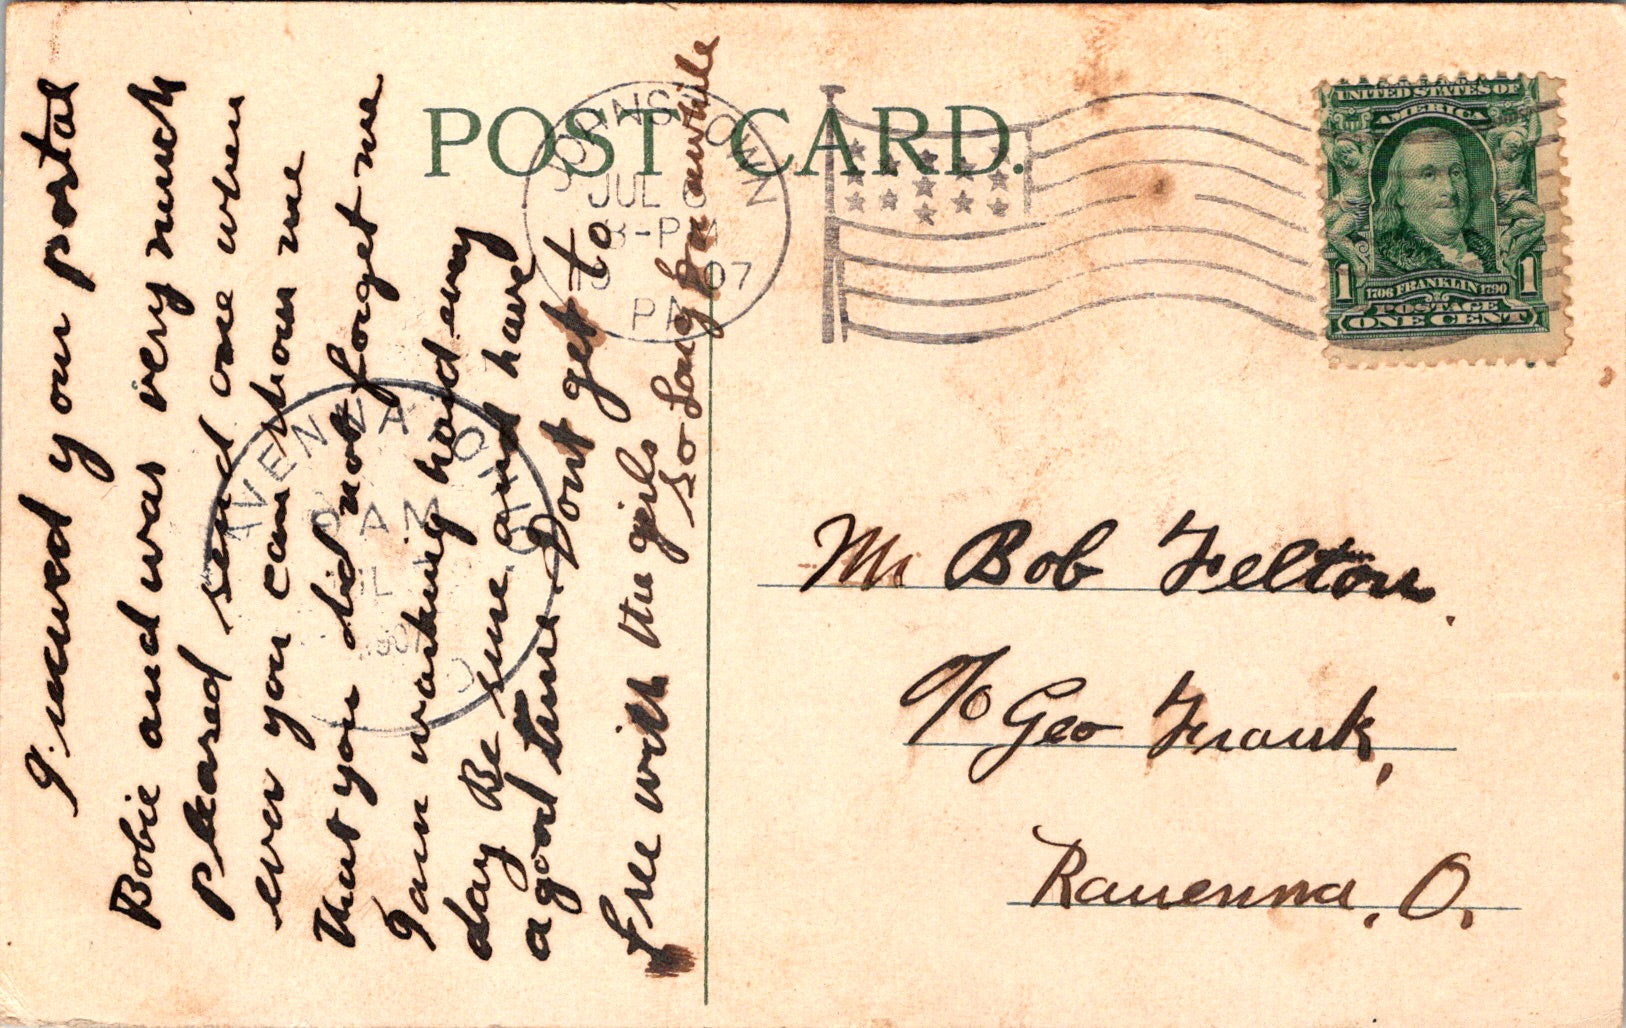 I received your postal
Bobie and was very much
pleased send one when
ever you can show me
that you did not forget me
I am working hard every
day Be sure and have
a good time. Dont get to
free with the girls
So Long for awhile
POST CARD.
JOHNSTOWN
JUL 8
8-PM
07
PA
UNITED STATES OF
AMERICA
1 1
1706 FRANKLIN 1790
POSTAGE
ONE CENT
RAVENNA OHIO
AM
JUL
1907
Mr Bob Felton.
c/o Geo Frank,
Ravenna, O.